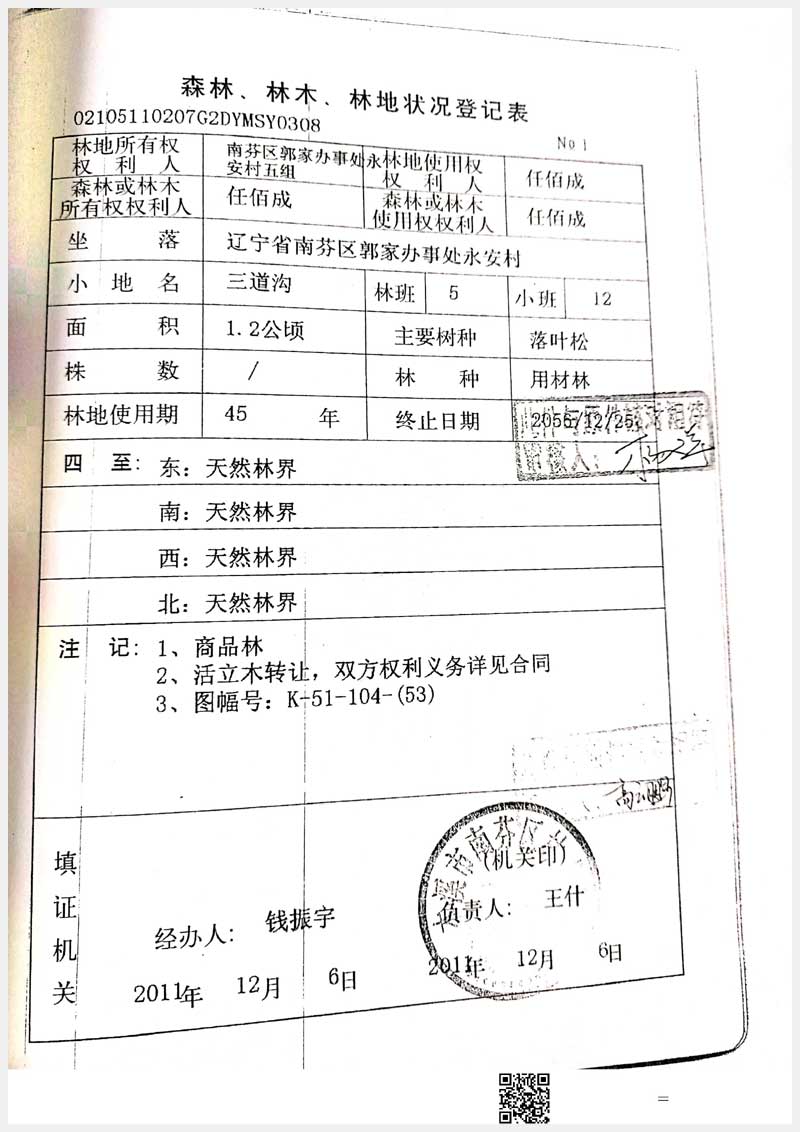 森林、林木、林地状况登记表
02105110207G2DYMSY0308
No 1
林地所有权权利人 南芬区郭家办事处永安村五组 林地使用权权利人 任佰成
森林或林木所有权权利人 任佰成 森林或林木使用权权利人 任佰成
坐落 辽宁省南芬区郭家办事处永安村
小地名 三道沟 林班 5 小班 12
面积 1.2公顷 主要树种 落叶松
株数 / 林种 用材林
林地使用期 45 年 终止日期 2056/12/25
审核人:
四至: 东: 天然林界
南: 天然林界
西: 天然林界
北: 天然林界
注记: 1、商品林
2、活立木转让，双方权利义务详见合同
3、图幅号: K-51-104-(53)
填证机关
市南芬区
(机关印)
经办人: 钱振宇 负责人: 王什
2011年 12月 6日 2011年 12月 6日
=